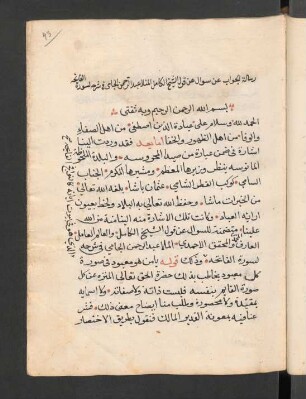 ٤٣
رسالة الجواب عن سوال عن قول الشيخ الكامل المنلا عبد الرحمن الجامي في شرحه لسورة الفاتحة
بسم الله الرحمن الرحيم وبه ثقتي
الحمد لله وسلام على عباده الذين اصطفى من اهل الصفاء
والوفا من اهل الظهور والخفا اما بعد فقد وردت الينا
اشارة في ضمن عبارة من صيد المحروسه والبلدة
المانوسه بنظر وزيرها المعظم ومشيرها المكرم الجناب
السامي كوكب القطر الشامي عثمان باشا بلغه الله تعالى
من الخيرات ماشا وحفظ الله تعالى به البلاد ولحظ بعيون
ارائه العباد وكانت تلك الاشارة منه الينا منة من الله
علينا متضمنة للسوال عن قول الشيخ الكامل والعالم العامل
العارف المحقق الاحمدي المنلا عبد الرحمن الجامي في شرحه
لسورة الفاتحة وذلك قوله يا من هو معبود في صورة
كل معبود يخاطب بذلك حضرة الحق تعالى المنزه عن كل
صورة القايم بنفسه فليست ذاته ولا صفاته ولا اسمايه
مقيدة ولا محصورة وطلب منا ايضاح معنى ذلك فنشر
عنانه بمعونة القدير المالك فنقول بطريق الاختصار